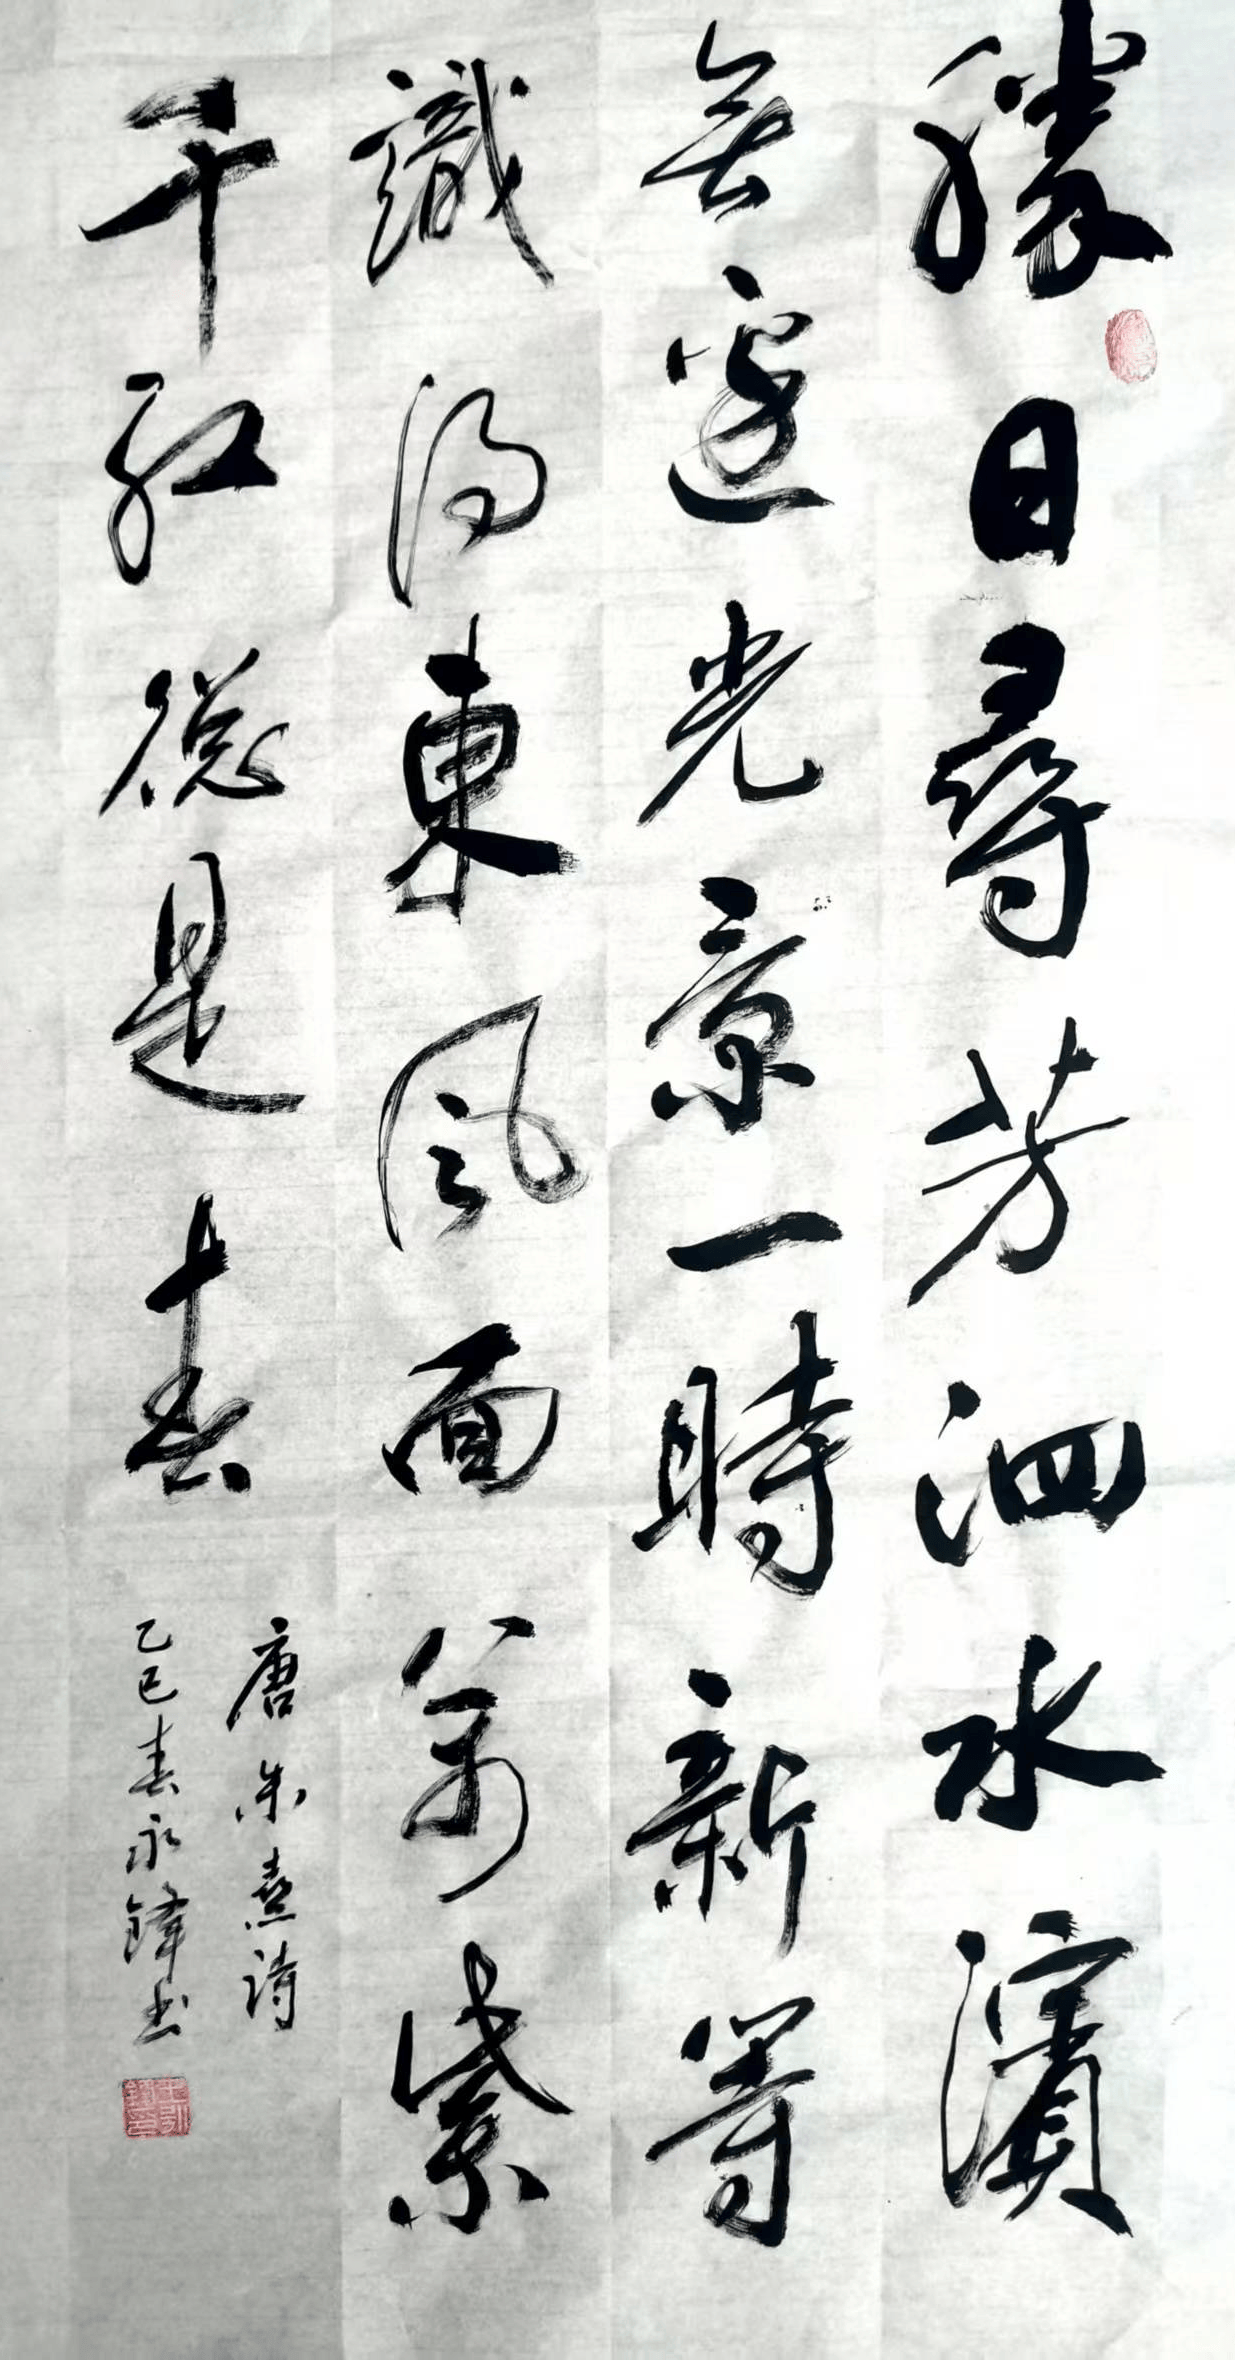 勝日尋芳泗水濱
無邊光景一時新等
識得東風面萬紫
千紅總是春
唐朱熹詩
乙巳春永鋒書